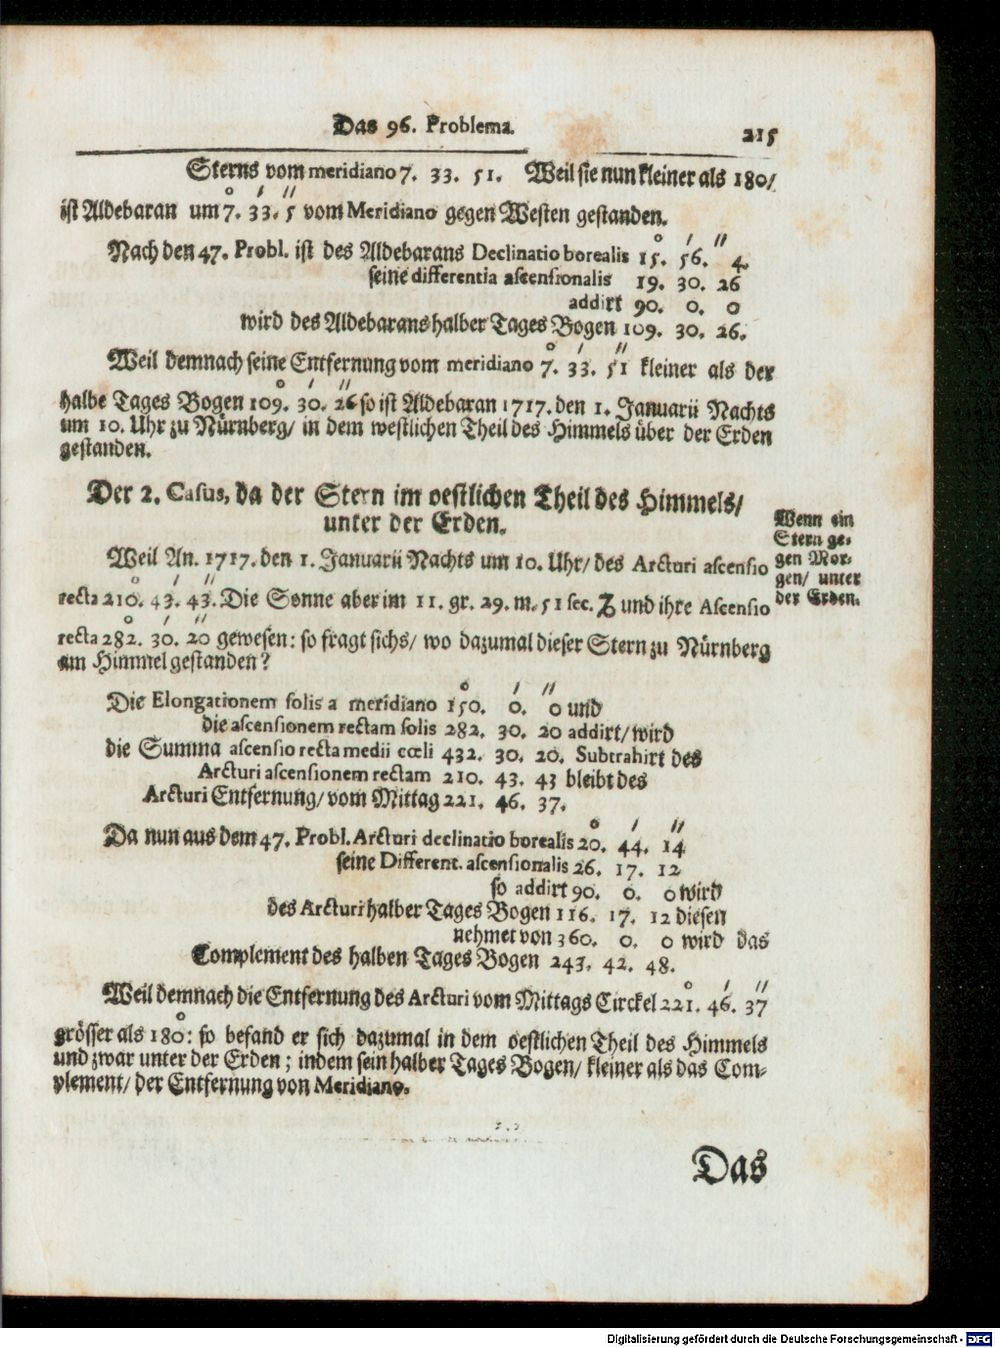 Das 96. Problema.
215
Sterns vom meridiano 7. 33. 51. Weil sie nun kleiner als 180/
° ′ ″
ist Aldebaran um 7. 33. 5 vom Meridiano gegen Westen gestanden.
° ′ ″
Nach den 47. Probl. ist des Aldebarans Declinatio borealis 15. 56. 4.
seine differentia ascensionalis 19. 30. 26
addirt 90. 0. 0
wird des Aldebarans halber Tages Bogen 109. 30. 26.
° ′ ″
Weil demnach seine Entfernung vom meridiano 7. 33. 51 kleiner als der
° ′ ″
halbe Tages Bogen 109. 30. 26 so ist Aldebaran 1717. den 1. Januarii Nachts
um 10. Uhr zu Nürnberg/ in dem westlichen Theil des Himmels über der Erden
gestanden.
Der 2. Casus, da der Stern im oestlichen Theil des Himmels/
unter der Erden.
Wenn ein
Stern ge-
gen Mor-
gen/ unter
der Erden.
Weil An. 1717. den 1. Januarii Nachts um 10. Uhr/ des Arcturi ascensio
° ′ ″
recta 210. 43. 43. Die Sonne aber im 11. gr. 29. m. 51 sec. ♑ und ihre Ascensio
° ′ ″
recta 282. 30. 20 gewesen: so fragt sichs/ wo dazumal dieser Stern zu Nürnberg
am Himmel gestanden?
° ′ ″
Die Elongationem solis a meridiano 150. 0. 0 und
die ascensionem rectam solis 282. 30. 20 addirt/ wird
die Summa ascensio recta medii cœli 432. 30. 20. Subtrahirt des
Arcturi ascensionem rectam 210. 43. 43 bleibt des
Arcturi Entfernung/ vom Mittag 221. 46. 37.
° ′ ″
Da nun aus dem 47. Probl. Arcturi declinatio borealis 20. 44. 14
seine Different. ascensionalis 26. 17. 12
so addirt 90. 0. 0 wird
des Arcturi halber Tages Bogen 116. 17. 12 diesen
nehmet von 360. 0. 0 wird das
Complement des halben Tages Bogen 243. 42. 48.
° ′ ″
Weil demnach die Entfernung des Arcturi vom Mittags Circkel 221. 46. 37
°
grösser als 180: so befand er sich dazumal in dem oestlichen Theil des Himmels
und zwar unter der Erden; indem sein halber Tages Bogen/ kleiner als das Com-
plement/ der Entfernung von Meridiano.
Das
Digitalisierung gefördert durch die Deutsche Forschungsgemeinschaft - DFG